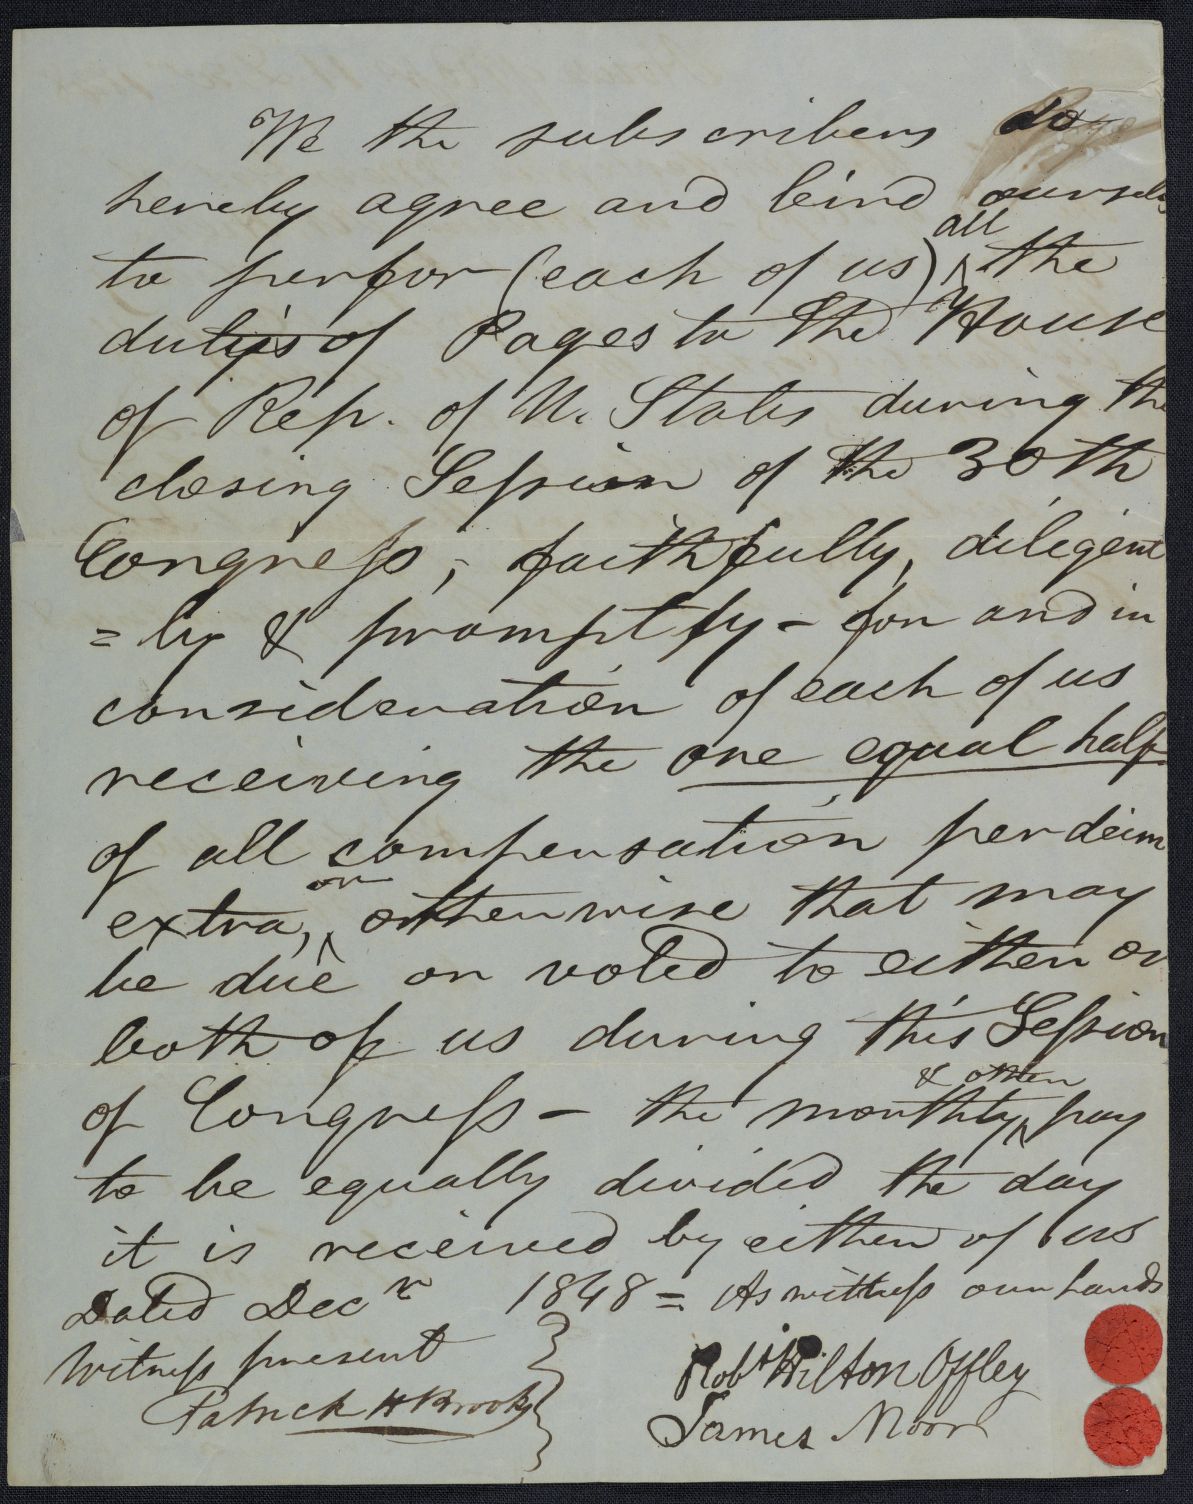 We the subscribers do
hereby agree and bind ourselves
to perfor (each of us) all the
duties of Pages to the House
of Rep. of U. States during the
closing Session of the 30th
Congress, faithfully, diligent
=ly & promptly - for and in
consideration of each of us
receiving the one equal half
of all compensation per deim
extra, or otherwise that may
be due or voted to either or
both of us during this Session
of Congress - the monthly & other pay
to be equally divided the day
it is received by either of us
Dated Decr 1848 = As wittness our hands
Witness present
Robt Wilton Offley
Patrick H Brooks
James Moor